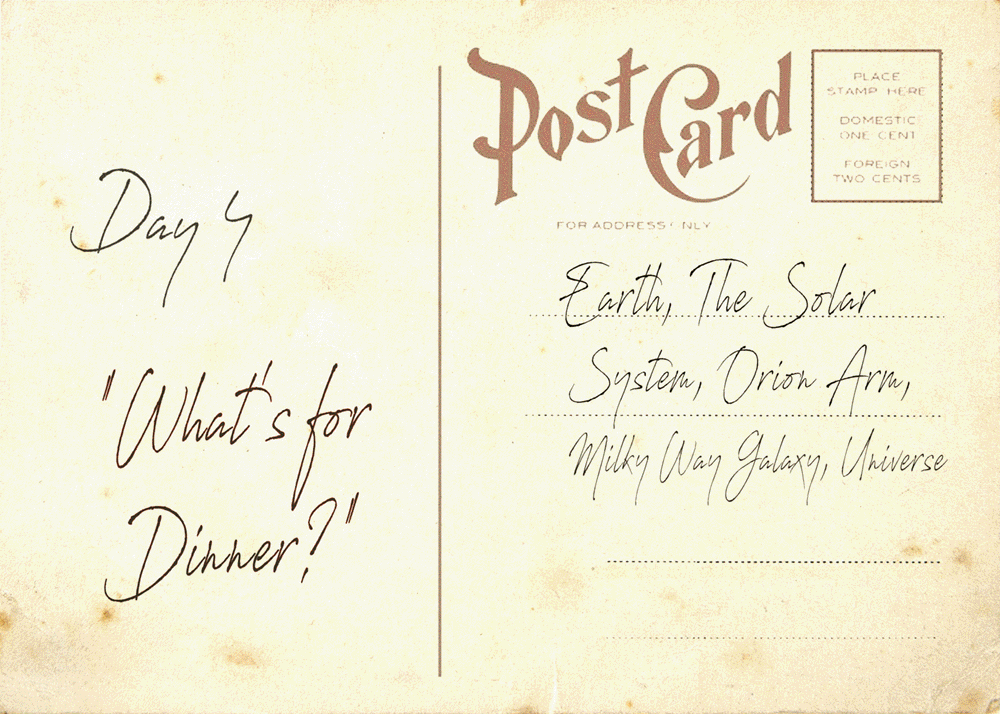 Post Card
PLACE
STAMP HERE
DOMESTIC
ONE CENT
FOREIGN
TWO CENTS
FOR ADDRESS NLY
Day 4
"What's for
Dinner?"
Earth, The Solar
System, Orion Arm,
Milky Way Galaxy, Universe